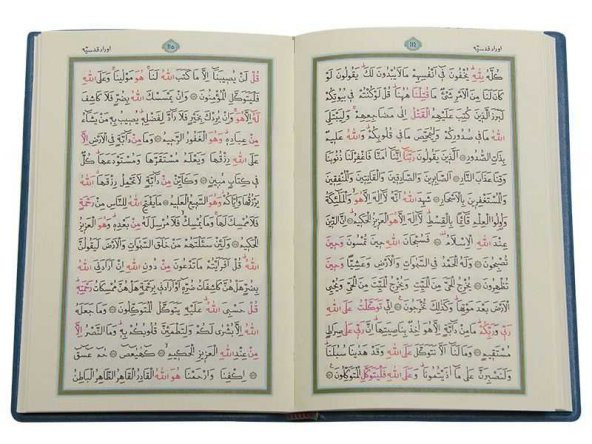 اوراد قدسيه
كُلَّهُ لِلّٰهِ يُخْفُونَ فِي اَنْفُسِهِمْ مَا لَا يُبْدُونَ لَكَ يَقُولُونَ لَوْ
كَانَ لَنَا مِنَ الْاَمْرِ شَيْءٌ مَا قُتِلْنَا هٰهُنَا قُلْ لَوْ كُنْتُمْ فِي بُيُوتِكُمْ
لَبَرَزَ الَّذِينَ كُتِبَ عَلَيْهِمُ الْقَتْلُ اِلٰى مَضَاجِعِهِمْ وَلِيَبْتَلِيَ
اللّٰهُ مَا فِي صُدُورِكُمْ وَلِيُمَحِّصَ مَا فِي قُلُوبِكُمْ وَاللّٰهُ عَلِيمٌ
بِذَاتِ الصُّدُورِ ۞ اَلَّذِينَ يَقُولُونَ رَبَّنَا اِنَّنَا اٰمَنَّا فَاغْفِرْ لَنَا ذُنُوبَنَا
وَقِنَا عَذَابَ النَّارِ ۞ اَلصَّابِرِينَ وَالصَّادِقِينَ وَالْقَانِتِينَ وَالْمُنْفِقِينَ
وَالْمُسْتَغْفِرِينَ بِالْاَسْحَارِ ۞ شَهِدَ اللّٰهُ اَنَّهُ لَا اِلٰهَ اِلَّا هُوَ وَالْمَلٰئِكَةُ
وَاُولُوا الْعِلْمِ قَائِمًا بِالْقِسْطِ لَا اِلٰهَ اِلَّا هُوَ الْعَزِيزُ الْحَكِيمُ ۞ اِنَّ الدِّينَ
عِنْدَ اللّٰهِ الْاِسْلَامُ ۞ فَسُبْحَانَ اللّٰهِ حِينَ تُمْسُونَ وَحِينَ
تُصْبِحُونَ ۞ وَلَهُ الْحَمْدُ فِي السَّمٰوَاتِ وَالْاَرْضِ وَعَشِيًّا وَحِينَ
تُظْهِرُونَ ۞ يُخْرِجُ الْحَيَّ مِنَ الْمَيِّتِ وَيُخْرِجُ الْمَيِّتَ مِنَ الْحَيِّ وَيُحْيِي
الْاَرْضَ بَعْدَ مَوْتِهَا وَكَذٰلِكَ تُخْرَجُونَ ۞ اِنِّي تَوَكَّلْتُ عَلَى اللّٰهِ
رَبِّي وَرَبِّكُمْ مَا مِنْ دَابَّةٍ اِلَّا هُوَ اٰخِذٌ بِنَاصِيَتِهَا اِنَّ رَبِّي عَلٰى صِرَاطٍ
مُسْتَقِيمٍ ۞ وَمَا لَنَا اَلَّا نَتَوَكَّلَ عَلَى اللّٰهِ وَقَدْ هَدٰينَا سُبُلَنَا
وَلَنَصْبِرَنَّ عَلٰى مَا اٰذَيْتُمُونَا وَعَلَى اللّٰهِ فَلْيَتَوَكَّلِ الْمُتَوَكِّلُونَ ۞
اوراد قدسيه
قُلْ لَنْ يُصِيبَنَا اِلَّا مَا كَتَبَ اللّٰهُ لَنَا هُوَ مَوْلٰينَا وَعَلَى اللّٰهِ
فَلْيَتَوَكَّلِ الْمُؤْمِنُونَ ۞ وَاِنْ يَمْسَسْكَ اللّٰهُ بِضُرٍّ فَلَا كَاشِفَ
لَهُ اِلَّا هُوَ وَاِنْ يُرِدْكَ بِخَيْرٍ فَلَا رَادَّ لِفَضْلِهِ يُصِيبُ بِهِ مَنْ يَشَاءُ
مِنْ عِبَادِهِ وَهُوَ الْغَفُورُ الرَّحِيمُ ۞ وَمَا مِنْ دَابَّةٍ فِي الْاَرْضِ اِلَّا
عَلَى اللّٰهِ رِزْقُهَا وَيَعْلَمُ مُسْتَقَرَّهَا وَمُسْتَوْدَعَهَا كُلٌّ
فِي كِتَابٍ مُبِينٍ ۞ وَكَاَيِّنْ مِنْ دَابَّةٍ لَا تَحْمِلُ رِزْقَهَا اَللّٰهُ
يَرْزُقُهَا وَاِيَّاكُمْ وَهُوَ السَّمِيعُ الْعَلِيمُ ۞ مَا يَفْتَحِ اللّٰهُ لِلنَّاسِ مِنْ رَحْمَةٍ
فَلَا مُمْسِكَ لَهَا وَمَا يُمْسِكْ فَلَا مُرْسِلَ لَهُ مِنْ بَعْدِهِ وَهُوَ الْعَزِيزُ
الْحَكِيمُ ۞ وَلَئِنْ سَاَلْتَهُمْ مَنْ خَلَقَ السَّمٰوَاتِ وَالْاَرْضَ لَيَقُولُنَّ
اللّٰهُ قُلْ اَفَرَاَيْتُمْ مَا تَدْعُونَ مِنْ دُونِ اللّٰهِ اِنْ اَرَادَنِيَ اللّٰهُ
بِضُرٍّ هَلْ هُنَّ كَاشِفَاتُ ضُرِّهِ اَوْ اَرَادَنِي بِرَحْمَةٍ هَلْ هُنَّ مُمْسِكَاتُ رَحْمَتِهِ
قُلْ حَسْبِيَ اللّٰهُ عَلَيْهِ يَتَوَكَّلُ الْمُتَوَكِّلُونَ ۞ وَمَا جَعَلَهُ
اللّٰهُ اِلَّا بُشْرٰى لَكُمْ وَلِتَطْمَئِنَّ قُلُوبُكُمْ بِهِ وَمَا النَّصْرُ اِلَّا
مِنْ عِنْدِ اللّٰهِ الْعَزِيزِ الْحَكِيمِ ۞ كٓهٰيٰعٓصٓ ۞ حٰمٓ عٓسٓقٓ
۞ اِكْفِنَا وَارْحَمْنَا هُوَ اللّٰهُ الْقَادِرُ الْقَاهِرُ الظَّاهِرُ الْبَاطِنُ